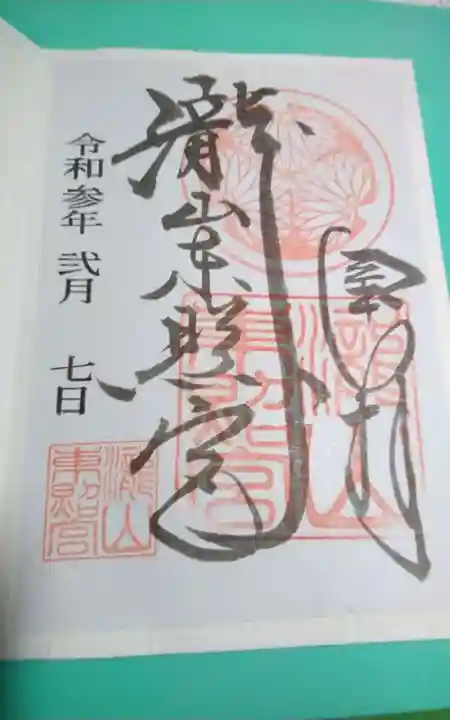 奉拝
瀧山東照宮
令和参年 弐月 七日
瀧山
東照宮
瀧山
東照宮